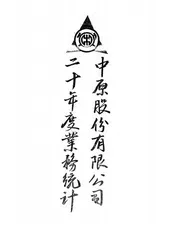 中原股份有限公司
二十年度業務統計